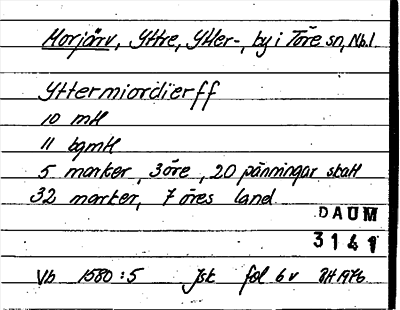 Morjärv, Yttre, Ytter-, by i Töre sn, Nb.l.
Yttermiordierff
10 mtl
11 bgmtl
5 marker, 3 öre, 20 pänningar skatt
32 marker, 7 öres land
DAUM
3141
Vb 1580:5 Jsk fol 6v BH 1976